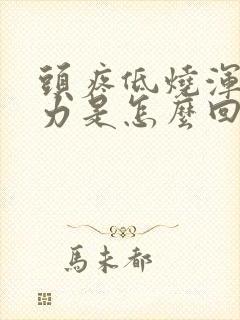 頭疼低燒渾
力是怎麼回
馬未都